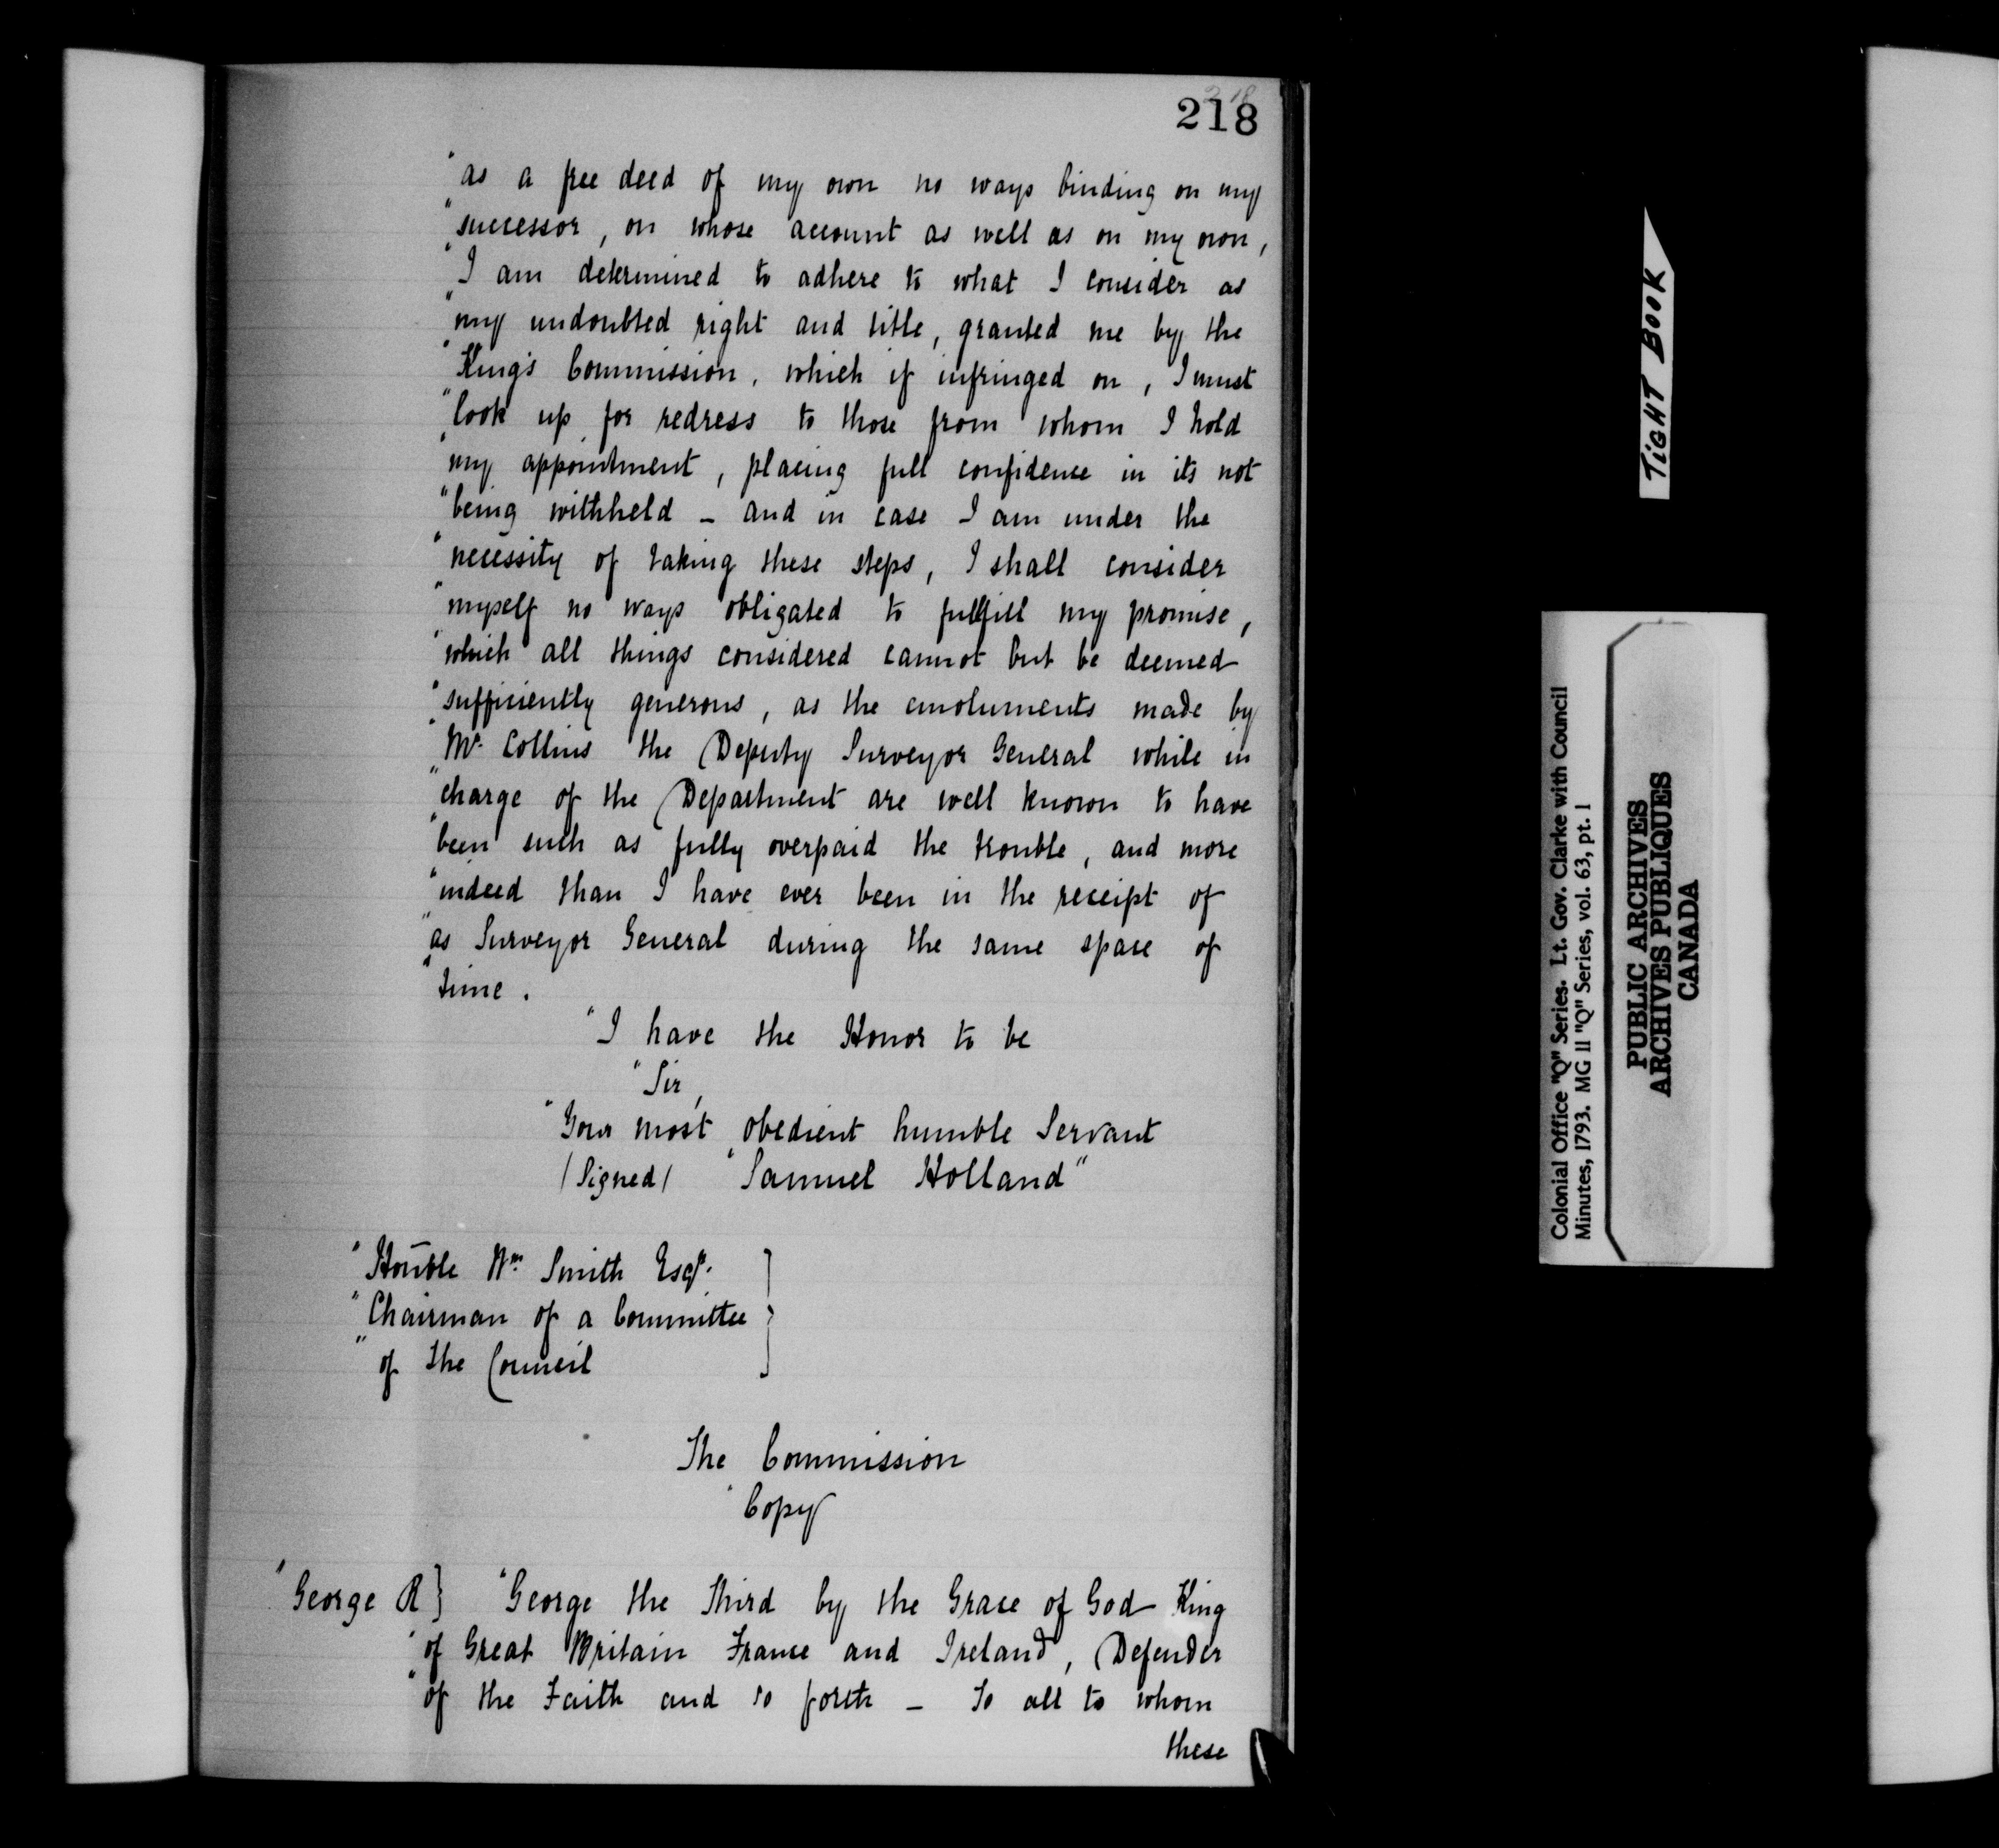 218
218
"as a free deed of my own no ways binding on my
"successor, on whose account as well as on my own,
"I am determined to adhere to what I consider as
"my undoubted right and title, granted me by the
"King's Commission, which if infringed on, I must
"look up for redress to those from whom I hold
"my appointment, placing full confidence in its not
"being withheld - and in case I am under the
"necessity of taking these steps, I shall consider
"myself no ways obligated to fullfill my promise,
"which all things considered cannot but be deemed
"sufficiently generous, as the emoluments made by
"Mr. Collins the Deputy Surveyor General while in
"charge of the Department are well known to have
"been such as fully overpaid the trouble, and more
"indeed than I have ever been in the receipt of
"as Surveyor General during the same space of
"time.
"I have the Honor to be
"Sir,
"Your most obedient humble Servant
/Signed/ "Samuel Holland"
"Honble Wm. Smith Esqr.
"Chairman of a Committee
"of the Council
The Commission
"Copy
"George R} "George the Third by the Grace of God King
"of Great Britain France and Ireland, Defender
"of the Faith and so forth - To all to whom
these
TIGHT BOOK
Colonial Office "Q" Series. Lt. Gov. Clarke with Council
Minutes, 1793. MG 11 "Q" Series, vol. 63, pt. 1
PUBLIC ARCHIVES
ARCHIVES PUBLIQUES
CANADA